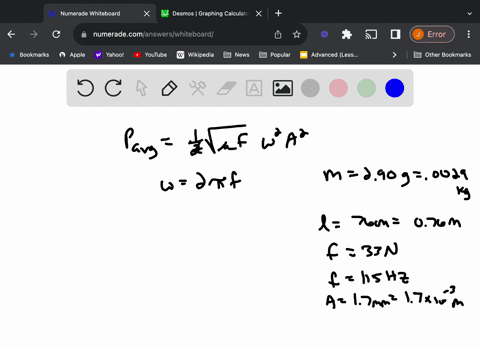 Numerade Whiteboard
Desmos | Graphing Calculat
numerade.com/answers/whiteboard/
Error
Bookmarks
Apple
Yahoo!
YouTube
Wikipedia
News
Popular
Advanced (Less...
Other Bookmarks
P_avg = 1/2 √μF ω² A²
ω = 2πf
m = 2.90 g = .0029 kg
l = 76cm = 0.76m
f = 33N
f = 115 HZ
A = 1.7mm = 1.7 x 10^-3 m